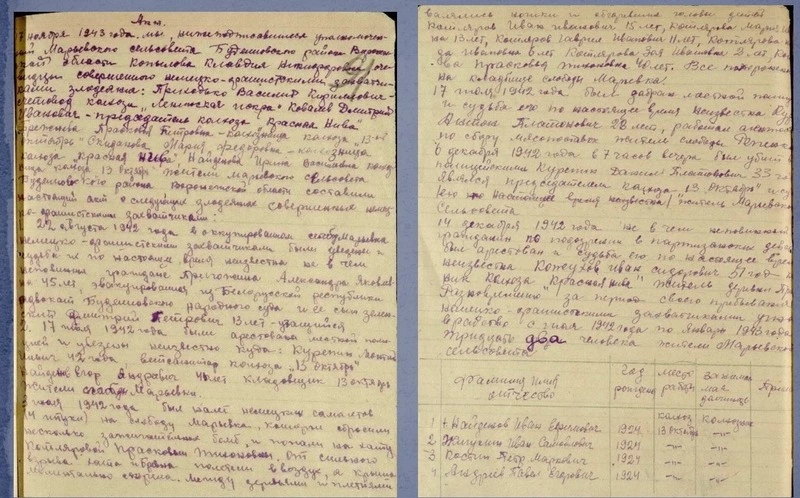 Акт.
7 ноября 1943 года. мы, нижеподписавшиеся уполномочен-
ной Марьевского сельсовета Буденновского района Воронеж-
ской области Копылова Клавдия оче-
видцы совершенного немецко-фашистскими захватчи-
ками злодеяния: Приходько Василий Кириллович-
счетовод колхоза "Ленинская искра" Ковалев Дмитрий
Иванович - председатель колхоза Красная Нива
Петровна - колхозница колхоза "13 ок-
тября" Мария Федоровна - колхозница
колхоза "Красная Нива", Найденова Ирина колхоз-
ница колхоза 13 октября жители Марьевского сельсовета
Буденновского района Воронежской области составили
настоящий акт о следующих злодеяниях совершенных немец-
ко-фашистскими захватчиками:
22 августа 1942 года в оккупированной слободе Марьевка
немецко-фашистскими захватчиками были уведены и
судьба их по настоящее время неизвестна не в чем
неповинные граждане Александра Яковлев-
на 45 лет, эвакуированная из Белорусской республики
адвокат Буденновского народного суда и ее сын
Дмитрий Петрович 13 лет - учащийся
2. 17 июля 1942 года были арестованы местной поли-
цией и увезены неизвестно куда: Куренко
42 года ветсанитар колхоза "13 октября"
Найденов Егор Андреевич 41 лет кладовщик 13 октября
жители слободы Марьевка.
июля 1942 года был налет немецких самолетов
(4 штуки) на слободу Марьевка, которые сбросили
несколько зажигательных бомб, и попали на хату
Котляровой Прасковьи Тихоновны, от сильного
взрыва хата и бревна полетели в воздух, а крыша
моментально сгорела. Между деревьями и плетнями
валялись ноги и оторванные головы детей
Котляров Иван Иванович 15 лет, Котлярова Мария
на 13 лет, Котляров Гаврил Иванович 11 лет, Котлярова
да Ивановна 6 лет Котлярова Зоя Ивановна 2 лет,
ва Прасковья Тихоновна 40 лет. Все похоронены
на кладбище слободы Марьевка.
17 июля 1942 года был забран местной полицией
и судьба его по настоящее время неизвестна
Платонович 28 лет, работал агентом
по сбору мясопоставок житель слободы
6 декабря 1942 года в 7 часов вечера был убит
полицейскими Куренко Даниил Платонович 33 го
являлся председателем колхоза "13 октября" и
его по настоящее время неизвестна / житель Марьевского
Сельсовета
14 декабря 1942 года не в чем неповинный
гражданин по подозрении в партизанских действ
был арестован и судьба его по настоящее время
неизвестна Кожухов Иван Сидорович 51 год
ник колхоза "Красная нива" житель деревни
Установлено за период своего пребывания
немецко-фашистскими захватчиками угнано
в рабство с июля 1942 года по январь 1943 года
тридцать два человека жители Марьевского
сельсовета
Фамилия имя отчество
Год рождения
место работы
занимаемая должность
1 Найденов Иван Ефимович 1924 колхоз 13 октября колхозник
2 Иван 1924 -"- -"-
3 Костин Петр Маркович 1924 -"- -"-
4 Андреев Павел Егорович 1924 -"- -"-